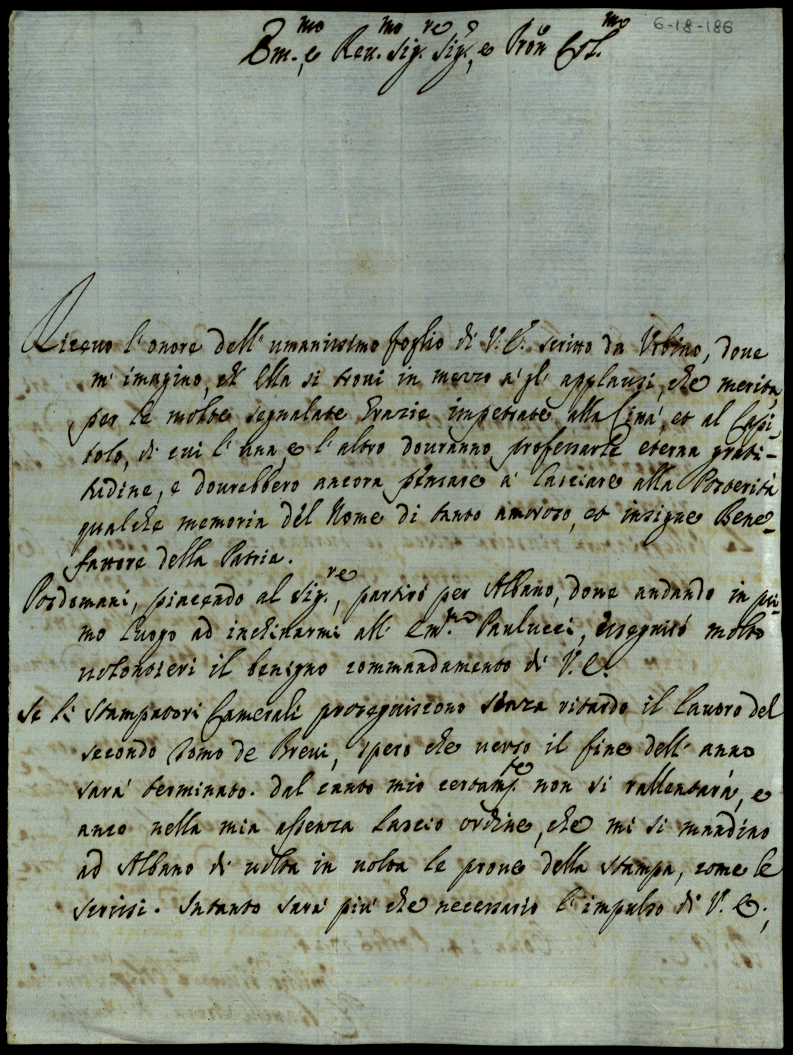 6-18-186
Em.mo, e Reu.mo Sig.re Sig.re, e Pron Col.mo
Riceuo l'onore dell'umanissimo foglio di V.E. scritto da Vrbino, doue
m'imagino, ch'Ella si troui in mezzo à gl'applausi, che merita
per le molte segnalate Grazie impetrate alla Città, et al Capi-
tolo, di cui l'una, e l'altro douranno professarle eterna grati-
tudine, e dourebbero ancora pensare à lasciare alla Posterità
qualche memoria del Nome di tanto amoroso, et insigne Bene-
fattore della Patria.
Posdomani, piacendo al Sig.re, partirò per Albano, doue andando in pri-
mo luogo ad inchinarmi all'Em.mo Paulucci, eseguirò molto
uolontieri il benigno commandamento di V.E.
Se li Stampatori Camerali proseguiscono senza ritardo il lauoro del
secondo Tomo de Breui, spero che uerso il fine dell'anno
sarà terminato. Dal canto mio certam.te non si rallentarà, e
anco nella mia assenza lascio ordine, che mi si mandino
ad Albano di uolta in uolta le proue della stampa, come le
scrissi. Intanto sarà più che necessario l'impulso di V.E.,